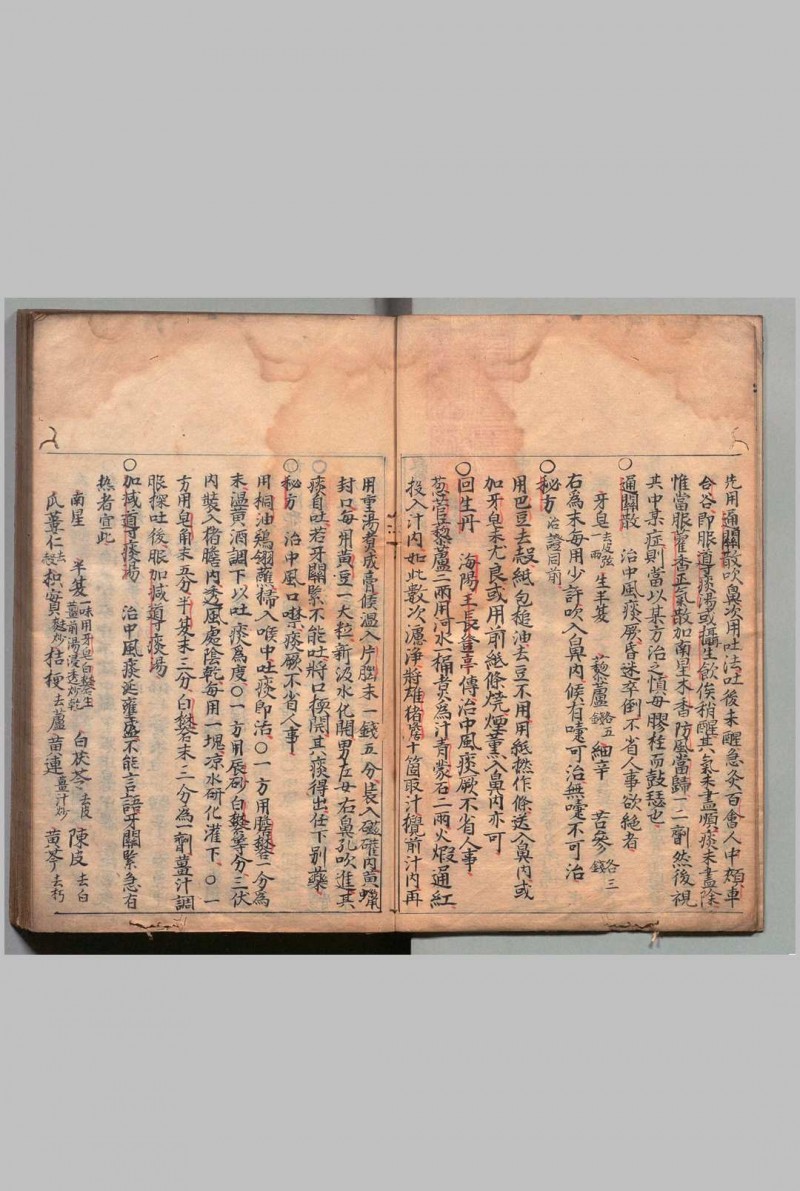 先用通關散吹鼻次用吐法吐後未醒急灸百會人中頰車
合谷即服導痰湯或攝生飲俟稍醒其氣未盡順痰未盡除
惟當服藿香正氣散加南星木香防風當歸一二劑然後視
其中某症則當以某方治之慎毋膠柱而鼓瑟也
○通關散 治中風痰厥昏迷卒倒不省人事欲絕者
牙皂去皮弦一兩 生半夏 藜蘆各五錢 細辛 苦參各三錢
右為末每用少許吹入鼻內候有嚏可治無嚏不可治
○秘方 治證同前
用巴豆去殼紙包槌油去豆不用用紙撚作條送入鼻內或
加牙皂末尤良或用前紙條燒煙薰入鼻內亦可
○回生丹 海陽王長登亭傳治中風痰厥不省人事
葱管藜蘆二兩用河水一桶煮為汁青蒙石二兩火煆通紅
投入汁內如此數次濾淨將雄猪膽十箇取汁攪前汁內再
用重湯煮成膏候溫入片腦末一錢五分裝入磁礶內黃蠟
封口每用黃豆一大粒新汲水化開男左女右鼻孔吹進其
痰自吐若牙關緊不能吐將口撬開其痰得出任下別藥
○秘方 治中風口噤痰厥不省人事
用桐油鷄翎蘸掃入喉中吐痰即治○一方用膽礬一分為
末溫黃酒調下以吐痰為度○一方用辰砂白礬等分三伏
內裝入猪膽內透風處陰乾每用一塊涼水研化灌下○一
方用皂角末五分半夏末三分白礬末二分為一劑薑汁調
服探吐後服加減導痰湯
○加減導痰湯 治中風痰涎壅盛不能言語牙關緊急有
熱者宜此
南星 半夏二味用牙皂白礬生薑煎湯浸透炒乾 白茯苓去皮 陳皮去白
瓜蔞仁去殼 枳實麩炒 桔梗去蘆 黃連薑汁炒 黃芩去朽